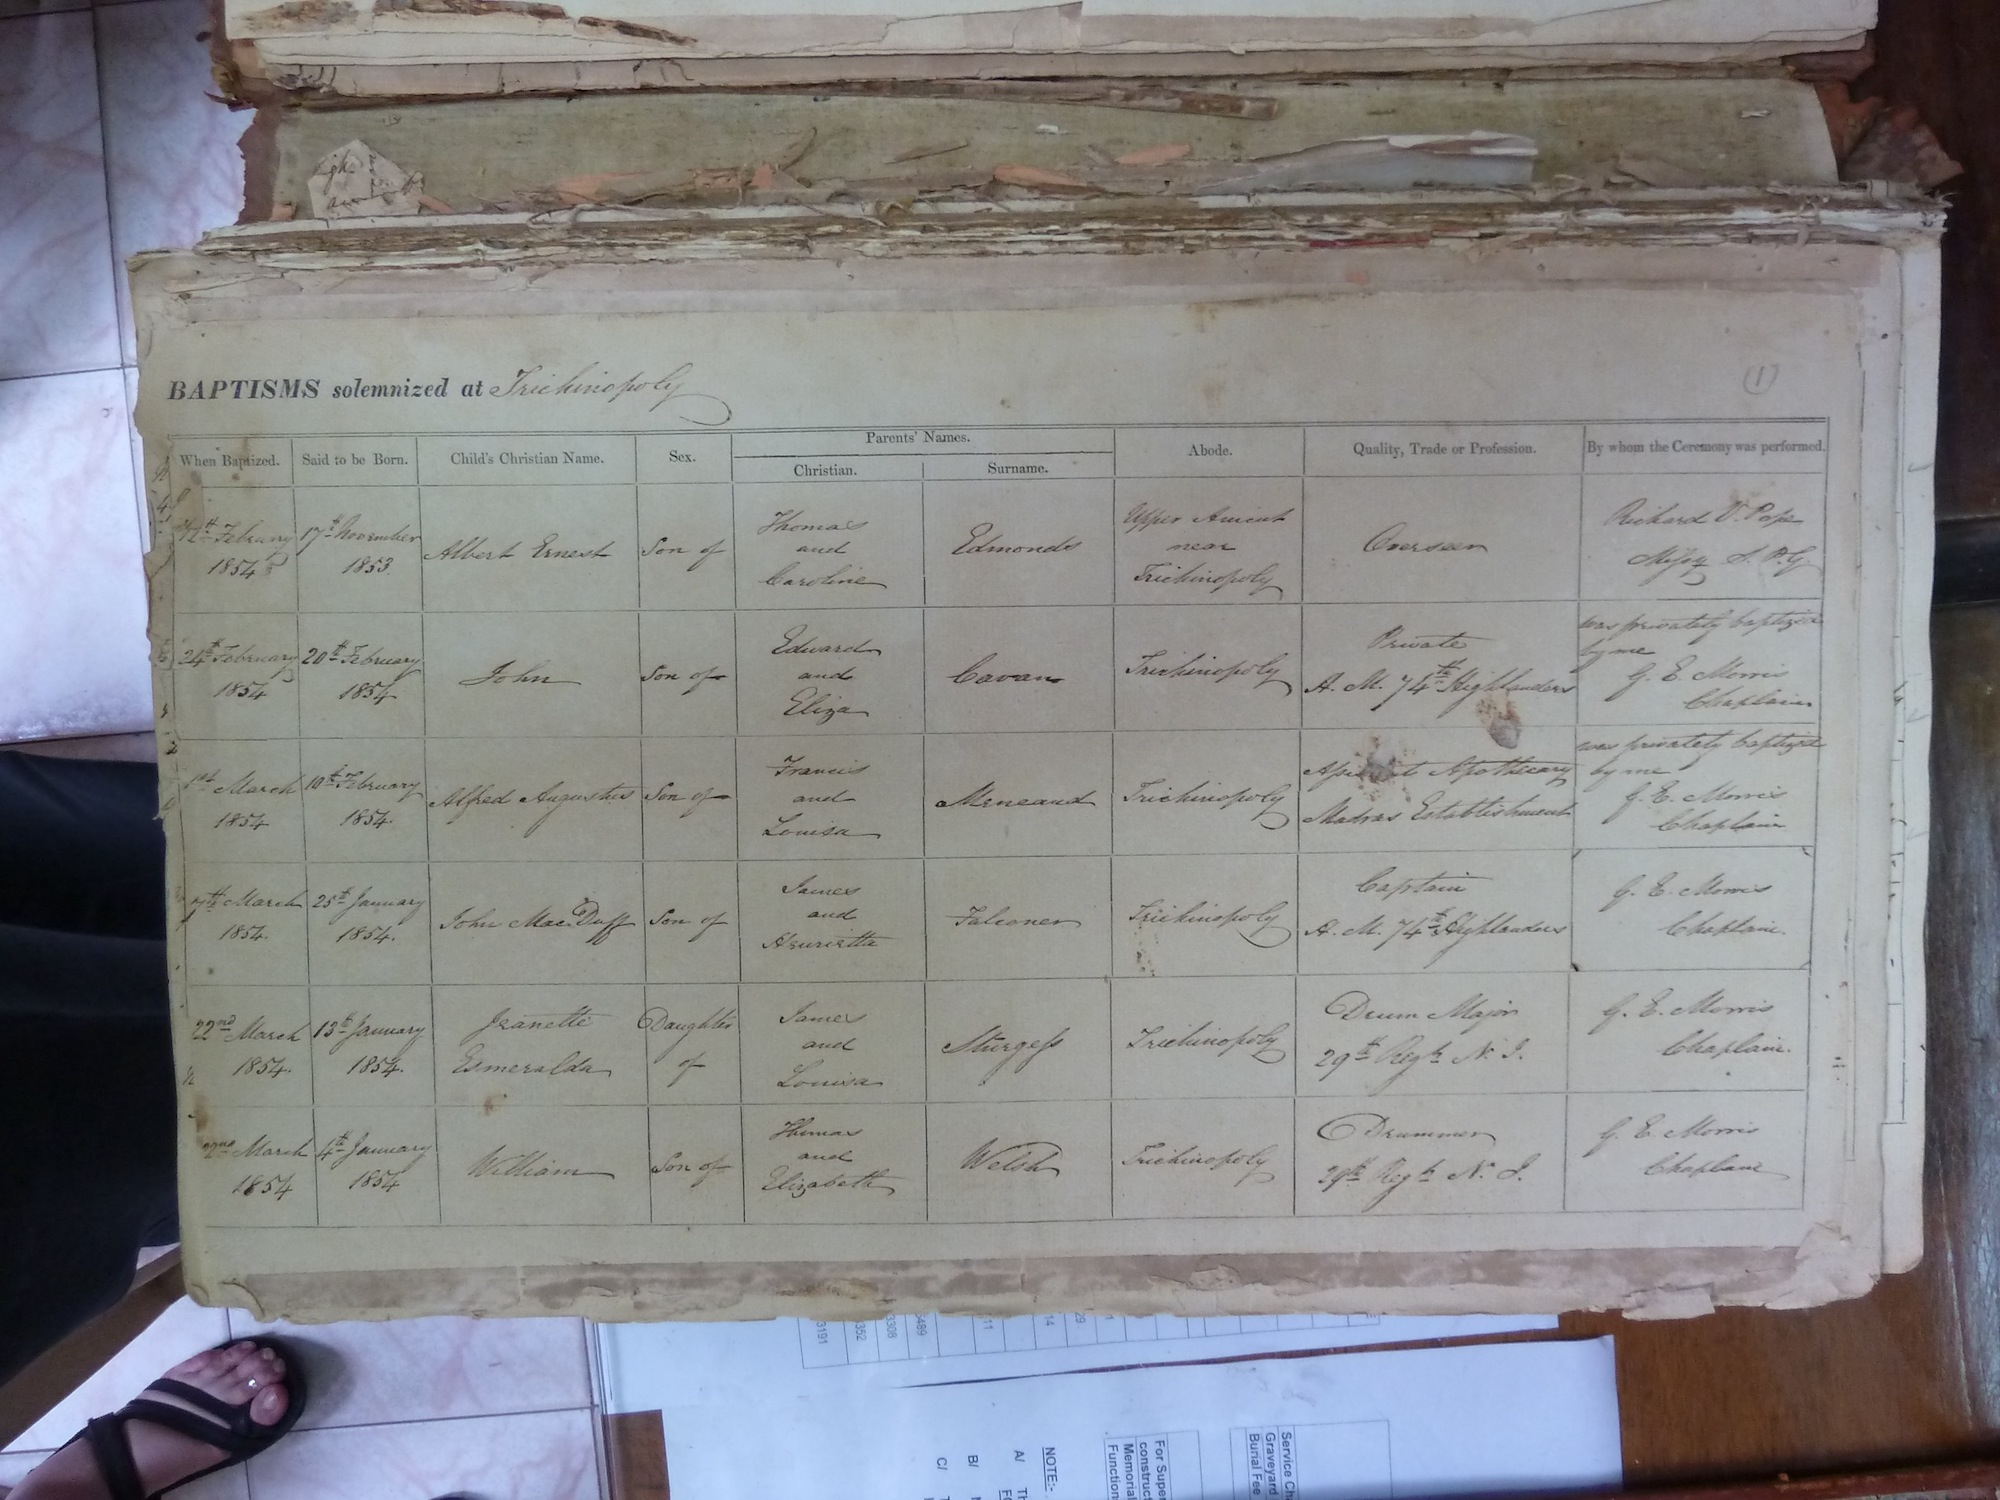 BAPTISMS solemnized at Trichinopoly
(1)
When Baptized. Said to be Born. Child's Christian Name. Sex. Parents' Names. Abode. Quality, Trade or Profession. By whom the Ceremony was performed.
Christian. Surname.
February 1854 17th November 1853 Albert Ernest Son of Thomas and Caroline Edmonds Upper Anicut near Trichinopoly Overseer Richard V. Pope Missy S. P. G.
24th February 1854 20th February 1854 John Son of Edward and Eliza Cavan Trichinopoly Private H. M. 74th Highlanders was privately baptized by me G. E. Morris Chaplain
1st March 1854 10th February 1854. Alfred Augustus Son of Francis and Louisa Trichinopoly Apothecary Madras Establishment was privately baptized by me G. E. Morris Chaplain
7th March 1854. 25th January 1854. John MacDuff Son of James and Henrietta Falconer Trichinopoly Captain H. M. 74th Highlanders G. E. Morris Chaplain.
22nd March 1854. 13th January 1854. Jeanette Esmeralda Daughter of James and Louisa Sturgess Trichinopoly Drum Major 29th Regt. N. I. G. E. Morris Chaplain.
22nd March 1854 4th January 1854 William Son of Thomas and Elizabeth Welsh Trichinopoly Drummer 29th Regt. N. I. G. E. Morris Chaplain
3191
352
3308
489
11
14
29
NOTE:-
A/
B/
C/
For Super
construct
Memorial
Function
Service Ch
Graveyard
Burial Fee